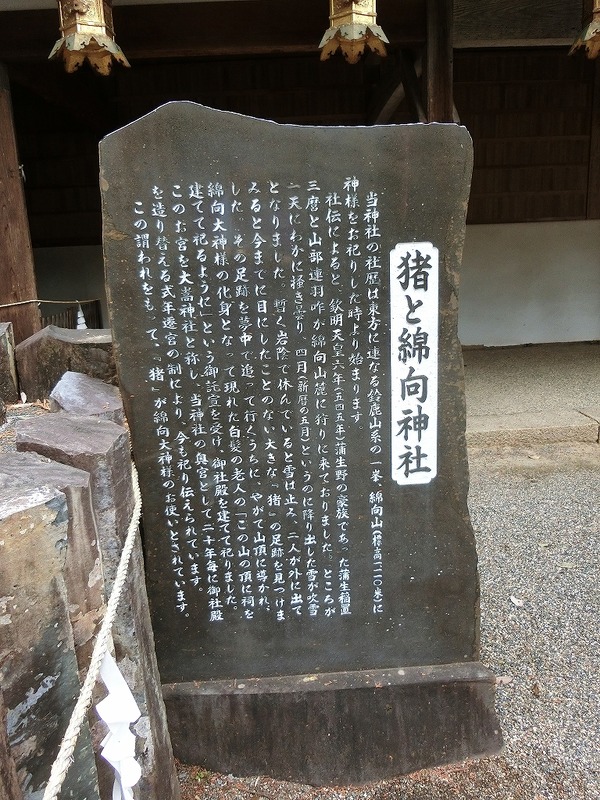 猪と綿向神社
当神社の社歴は東方に連なる鈴鹿山系の一峯、綿向山(標高一一一〇米)に
神様をお祀りした時より始まります。
社伝によると、欽明天皇六年(五四五年)蒲生野の豪族であった蒲生稲置
三麿と山部連羽咋が綿向山麓に狩りに来ておりました。ところが
一天にわかに掻き曇り、四月(新暦の五月)というのに降り出した雪が吹雪
となりました。暫く岩陰で休んでいると雪は止み、二人が外に出て
みると今までに目にしたことのない大きな「猪」の足跡を見つけま
した。その足跡を夢中で追って行くうちに、やがて山頂に導かれ、
綿向大神様の化身となって現れた白髪の老人の「この山の頂に祠を
建てて祀るように」という御託宣を受け、御社殿を建てて祀りました。
このお宮を大嵩神社と称し、当神社の奥宮として二十年毎に御社殿
を造り替える式年遷宮の制により、今も祀り伝えられています。
この謂われをもって、「猪」が綿向大神様のお使いとされています。